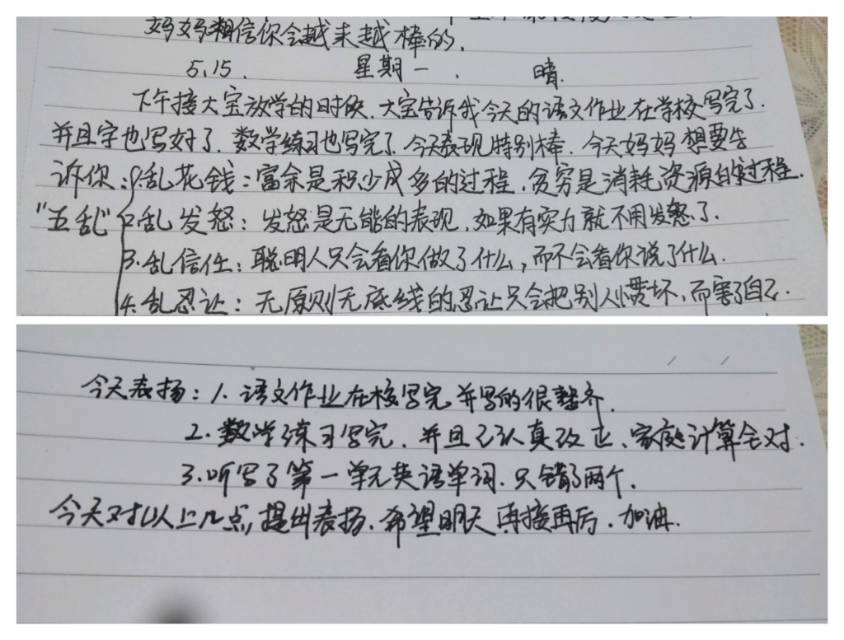 妈妈相信你会越来越棒的.
5.15. 星期一. 晴.
下午接大宝放学的时候.大宝告诉我今天的语文作业在学校写完了.
并且字也写好了.数学练习也写完了.今天表现特别棒.今天妈妈想要告
诉你:1.乱花钱:富余是积少成多的过程.贫穷是消耗资源的过程.
"五乱"2.乱发怒:发怒是无能的表现.如果有实力就不用发怒了.
3.乱信任:聪明人只会看你做了什么,而不会看你说了什么.
4.乱忍让:无原则无底线的忍让只会把别人惯坏,而害了自己.
今天表扬:1.语文作业在校写完并写的很整齐.
2.数学练习写完.并且已认真改正、家庭计算全对.
3.听写了第一单元英语单词.只错了两个.
今天对以上几点,提出表扬.希望明天再接再厉.加油.